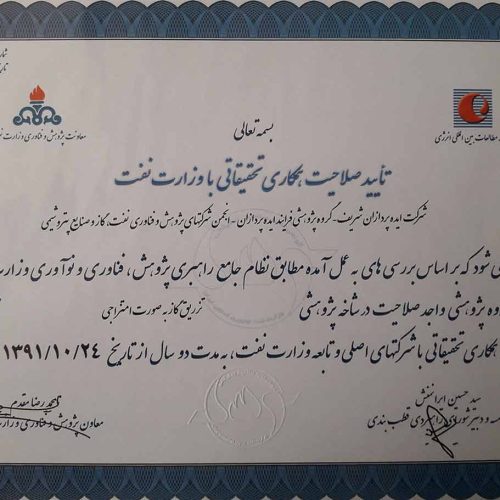 شما
تار
معاونت پژوهش و فناوری وزارت نفت
مطالعات بین المللی انرژی
بسمه تعالی
تأیید صلاحیت همکاری تحقیقاتی با وزارت نفت
شرکت ایده پردازان شریف - گروه پژوهشی فرایند ایده پردازان - انجمن شرکتهای پژوهش و فناوری نفت، گاز و صنایع پتروشیمی
ی شود که بر اساس بررسی های به عمل آمده مطابق نظام جامع راهبری پژوهش، فناوری و نوآوری وزارت
وه پژوهشی واجد صلاحیت در شاخه پژوهشی تزریق گاز به صورت امتزاجی
همکاری تحقیقاتی با شرکتهای اصلی و تابعه وزارت نفت، به مدت دو سال از تاریخ ۱۳۹۱/۱۰/۲۴
سید حسین ایرانمنش
سه و دبیر شورای راهبردی قطب بندی
محمدرضا مقدم
معاون پژوهش و فناوری وزارت